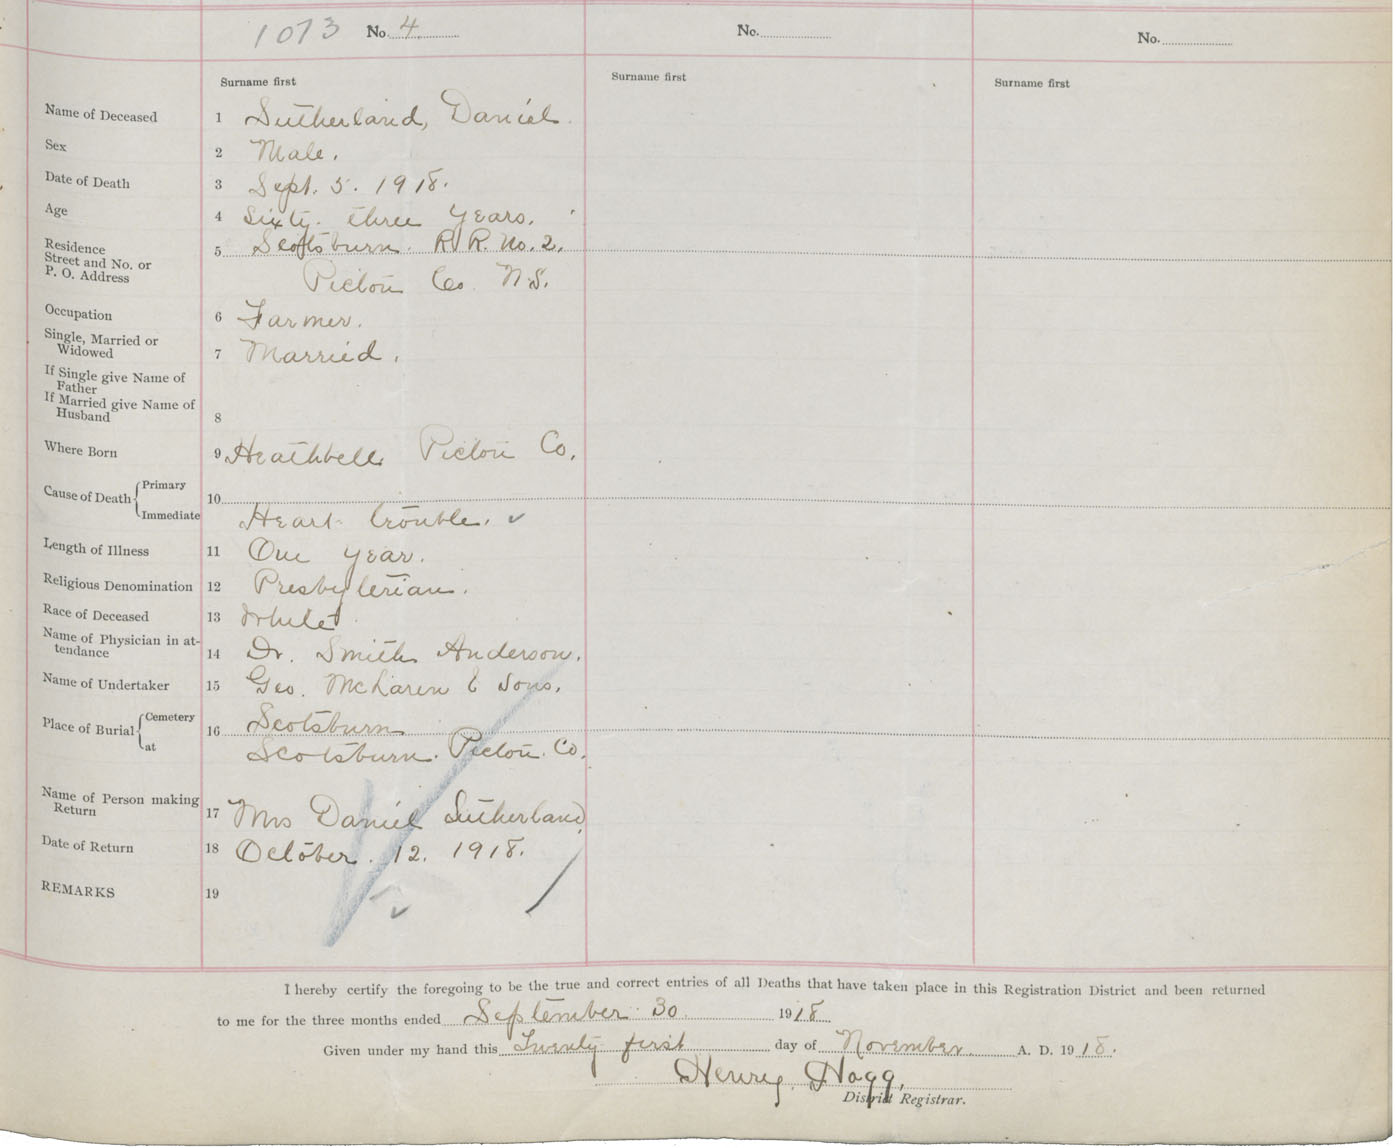 1073 No. 4 No. No.
Surname first Surname first Surname first
Name of Deceased 1 Sutherland, Daniel.
Sex 2 Male.
Date of Death 3 Sept. 5. 1918.
Age 4 Sixty three years.
Residence
Street and No. or 5 Scotsburn. R.R. No. 2.
P. O. Address Pictou Co. N.S.
Occupation 6 Farmer.
Single, Married or
Widowed 7 Married.
If Single give Name of
Father
If Married give Name of
Husband 8
Where Born 9 Heathbell Pictou Co.
Cause of Death { Primary 10
Immediate Heart trouble. ✓
Length of Illness 11 One year.
Religious Denomination 12 Presbyterian.
Race of Deceased 13 White
Name of Physician in at-
tendance 14 Dr. Smith Anderson.
Name of Undertaker 15 Geo. McLaren & Sons.
Place of Burial { Cemetery 16 Scotsburn
at Scotsburn. Pictou. Co.
Name of Person making
Return 17 Mrs Daniel Sutherland
Date of Return 18 October. 12. 1918.
REMARKS 19
I hereby certify the foregoing to be the true and correct entries of all Deaths that have taken place in this Registration District and been returned
to me for the three months ended September 30. 1918
Given under my hand this Twenty first day of November A. D. 1918.
Henry Hogg,
District Registrar.